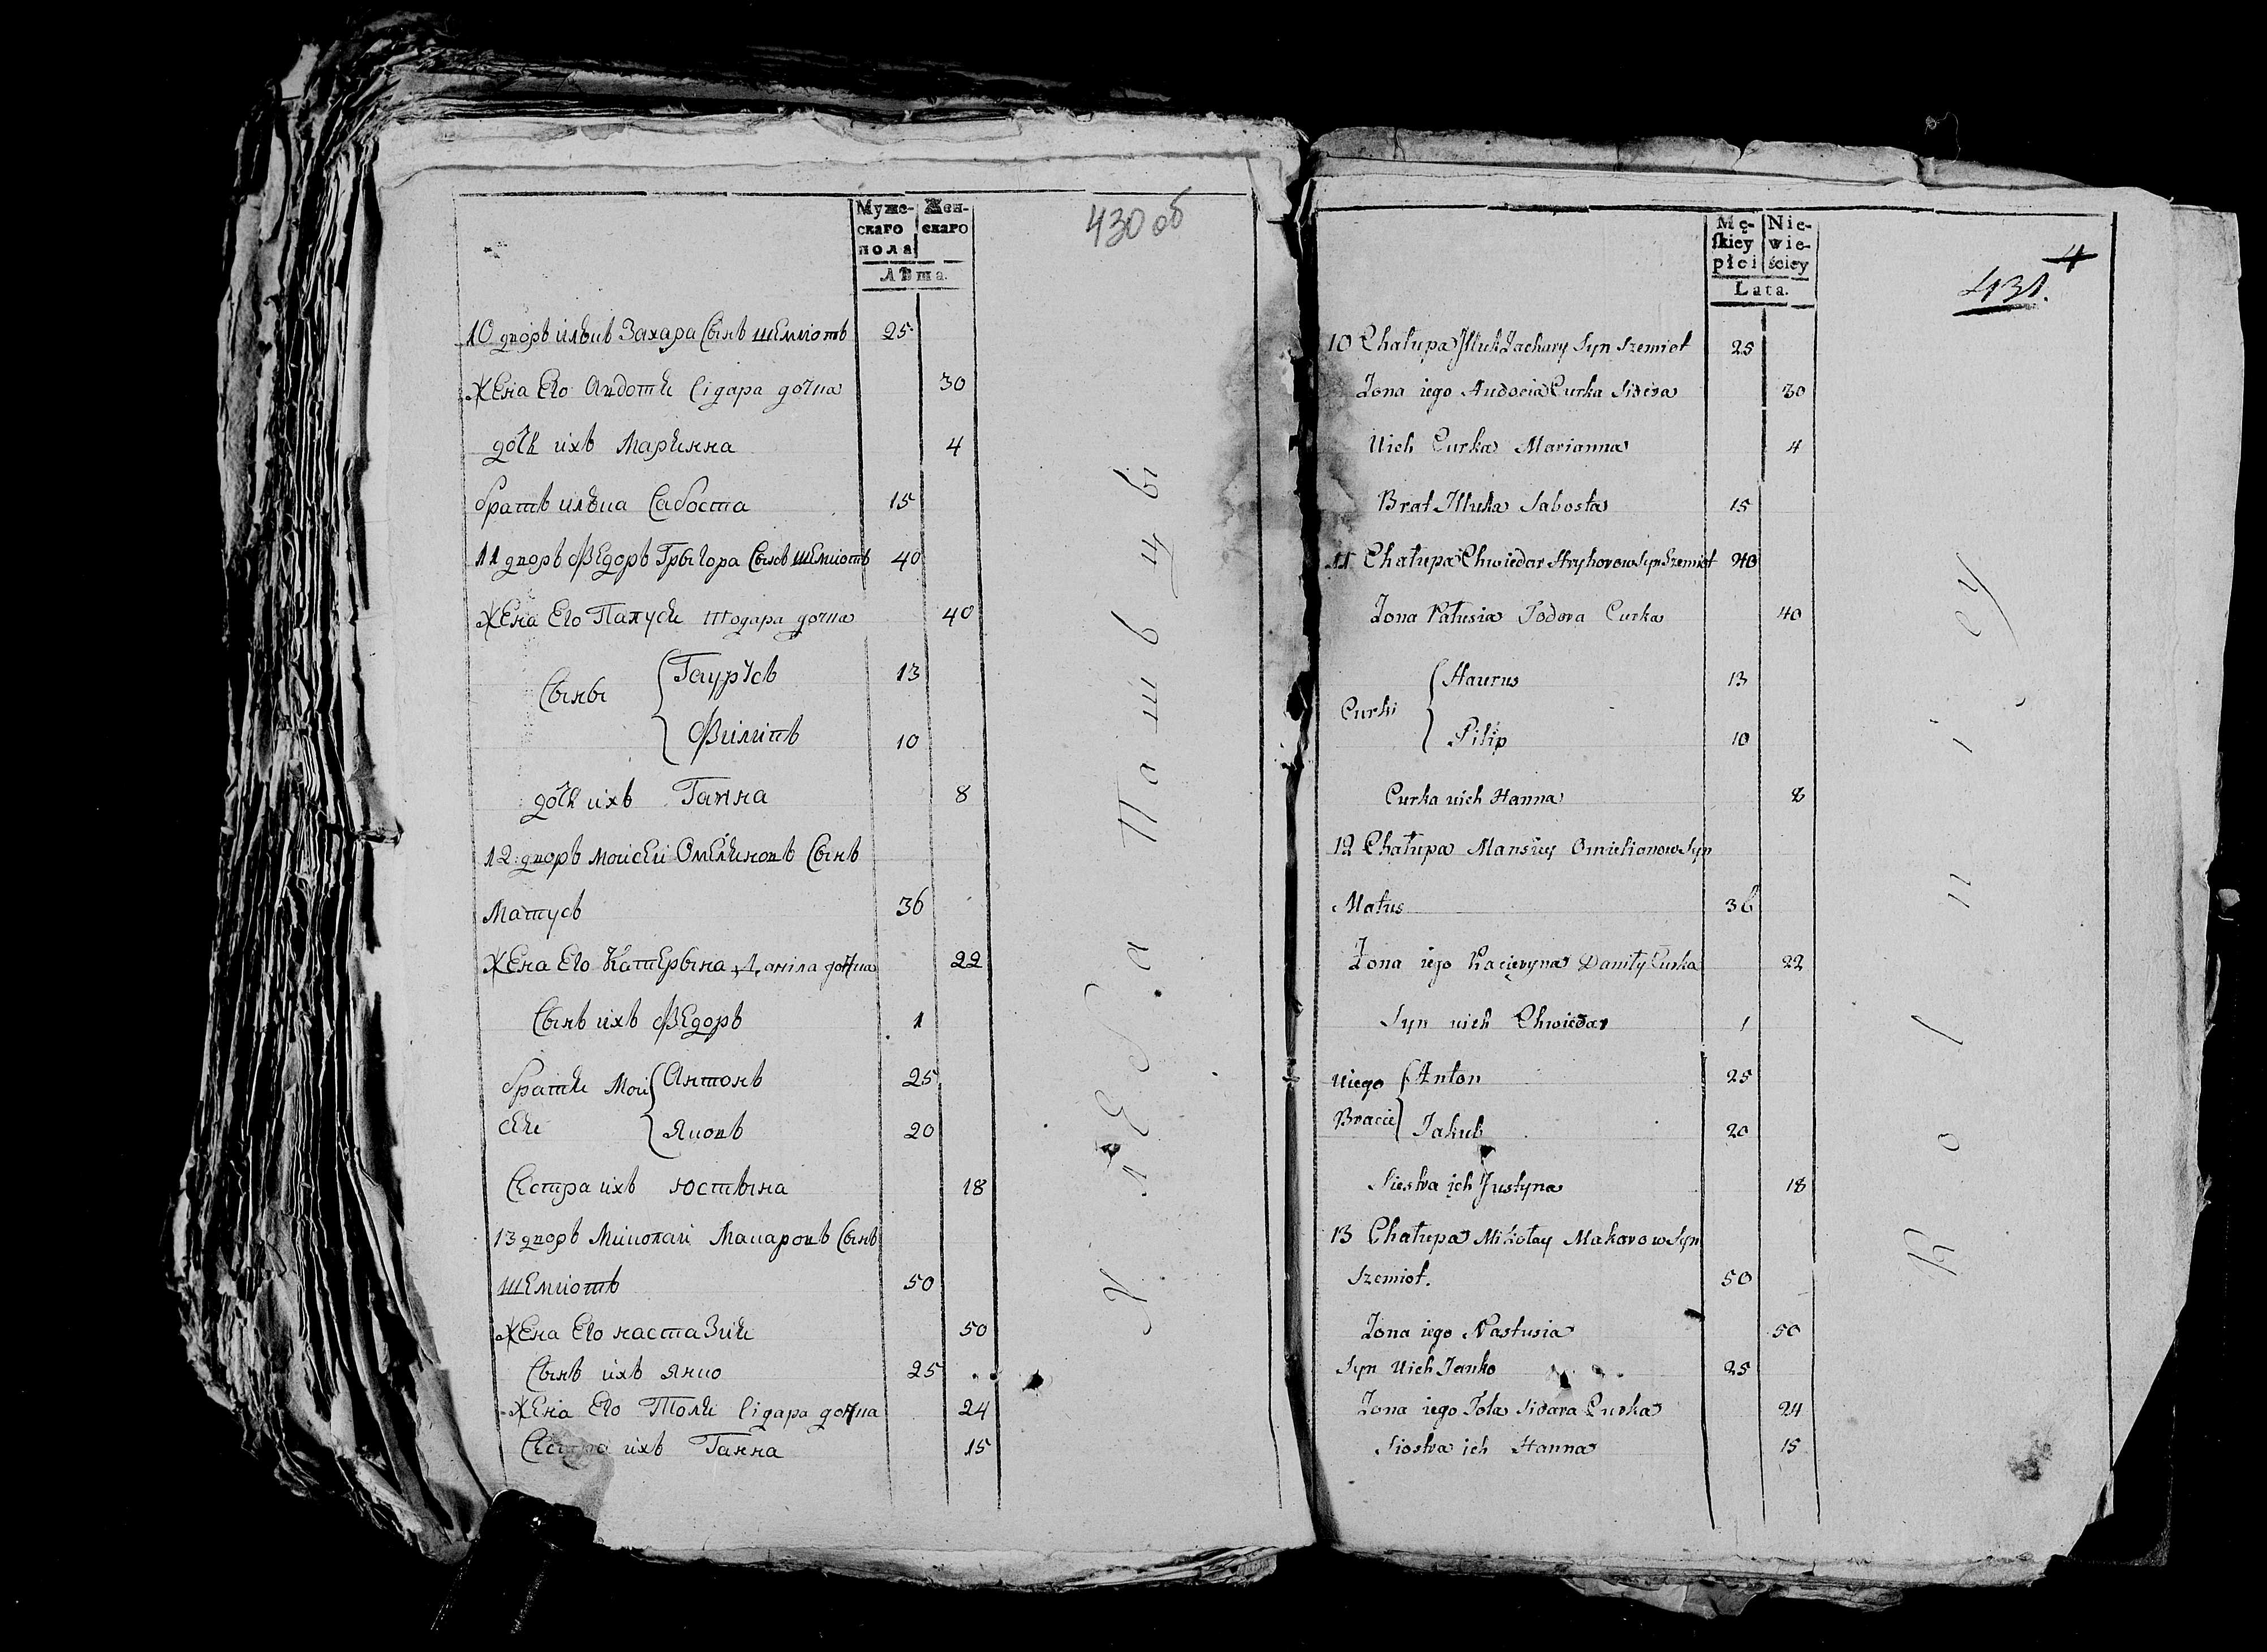 Муже-
скаго
пола
Жен-
скаго
Лѣта.
430 об
10 дворъ илькъ Захара Сынъ шемиотъ 25
Жена Его Авдотя Сідара дочка 30
дочь ихъ Марянна 4
братъ илька Сабоста 15
11 дворъ Федоръ Грыгора Сынъ шемиотъ 40
Жена Его Палуся тодара дочка 40
Сыны
Гаурусъ 13
Филипъ 10
дочь ихъ Ганна 8
12 дворъ Моисей Омеляновъ Сынъ
Матусъ 36
Жена Его Катерына Даніла дочка 22
Сынъ ихъ Федоръ 1
братя Мои
сея
Антонъ 25
Яковъ 20
Сестра ихъ юстына 18
13 дворъ Миколай Макаровъ Сынъ
шемиотъ 50
Жена Его настазия 50
Сынъ ихъ янко 25
Жена Его Толя Сідара дочка 24
Сестра ихъ Ганна 15
Хлебапашъцы
Mę-
skiey
płci
Nie-
wie-
ściey
Lata.
4
431.
10 Chałupa Illuk Zachary Syn Szemiot 25
Zona iego Audocia Curka Sidora 30
Uich Curka Marianna 4
Brat Illuka Sabosta 15
11 Chałupa Chwiedar Hryhorow Syn Szemiot 40
Zona Pałusia Todora Curka 40
Curki
Haurus 13
Pilip 10
Curka uich Hanna 8
12 Chałupa Mansiey Omielianow Syn
Matus 36
Zona iego Kacieryna Daniły Curka 22
Syn uich Chwiedar 1
Uiego
Bracie
Anton 25
Jakub 20
Siestra ich Justyna 18
13 Chałupa Mikołay Makarow Syn
Szemiot. 50
Zona iego Nastusia 50
Syn Uich Janko 25
Zona iego Tola Sidara Curka 24
Siostra ich Hanna 15
Rolnicy